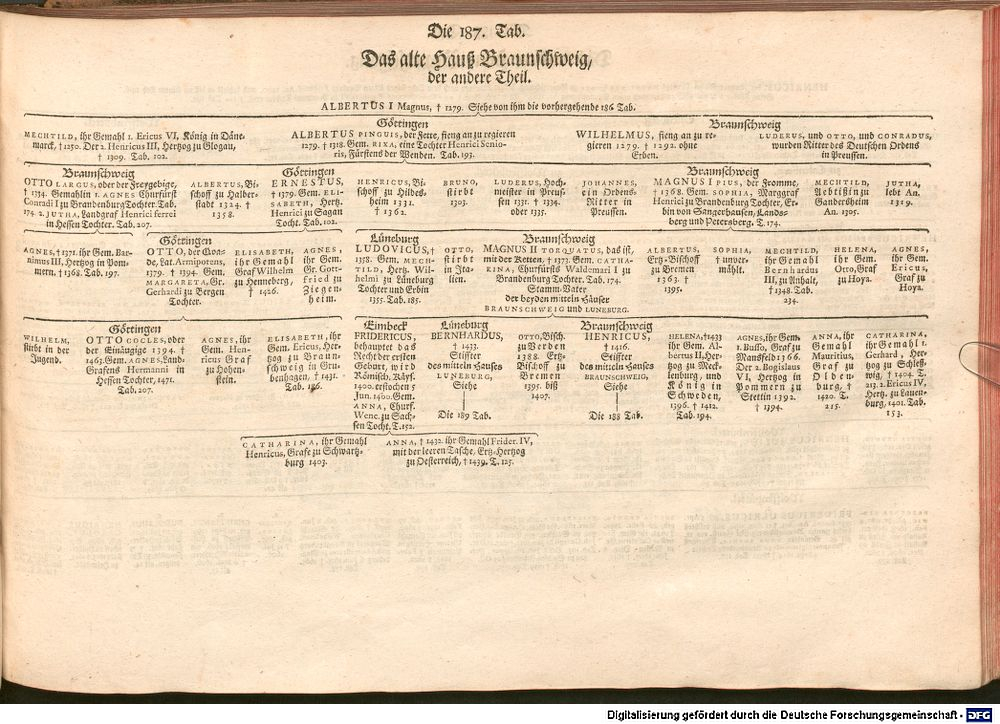 Die 187. Tab.
Das alte Hauß Braunschweig,
der andere Theil.
ALBERTUS I Magnus, † 1279. Siehe von ihm die vorhergehende 186 Tab.
MECHTILD, ihr Gemahl 1. Ericus VI, König in Däne-
marck, † 1250. Der 2. Henricus III, Hertzog zu Glogau,
† 1309. Tab. 102.
Göttingen
ALBERTUS PINGUIS, der Fette, fieng an zu regieren
1279. † 1318. Gem. RIXA, eine Tochter Henrici Senio-
ris, Fürstens der Wenden. Tab. 193.
Braunschweig
WILHELMUS, fieng an zu re-
gieren 1279. † 1292. ohne
Erben.
LUDERUS, und OTTO, und CONRADUS,
wurden Ritter des Deutschen Ordens
in Preussen.
Braunschweig
OTTO LARGUS, oder der Freygebige,
† 1334. Gemahlin 1. AGNES Churfürst
Conradi I zu Brandenburg Tochter. Tab.
174. 2. JUTHA, Landgraf Henrici ferrei
in Hessen Tochter. Tab. 207.
ALBERTUS, Bi-
schoff zu Halber-
stadt 1324. †
1358.
Göttingen
ERNESTUS,
† 1379. Gem. ELI-
SABETH, Hertz.
Henrici zu Sagan
Tocht. Tab. 102.
HENRICUS, Bi-
schoff zu Hildes-
heim 1331.
† 1362.
BRUNO,
stirbt
1303.
LUDERUS, Hoch-
meister in Preus-
sen 1331. † 1334.
oder 1335.
JOHANNES,
ein Ordens-
Ritter in
Preussen.
Braunschweig
MAGNUS I PIUS, der Fromme,
† 1368. Gem. SOPHIA, Marggraf
Henrici zu Brandenburg Tochter, Er-
bin von Sangerhausen, Lands-
berg und Petersberg. T. 174.
MECHTILD,
Aebtißin zu
Gandersheim
An. 1305.
JUTHA,
lebt An.
1319.
AGNES, † 1371. ihr Gem. Bar-
nimus III, Hertzog in Pom-
mern. † 1368. Tab. 197.
Göttingen
OTTO, der Qua-
de, Lat. Armipotens,
1379. † 1394. Gem.
MARGARETA, Gr.
Gerhardi zu Bergen
Tochter.
ELISABETH,
ihr Gemahl
Graf Wilhelm
zu Henneberg,
† 1426.
AGNES,
ihr Gem.
Gr. Gott-
fried zu
Ziegen-
heim.
Lüneburg
LUDOVICUS, †
1358. Gem. MECH-
TILD, Hertz. Wil-
helmi zu Lüneburg
Tochter und Erbin
1355. Tab. 185.
OTTO,
stirbt
in Ita-
lien.
Braunschweig
MAGNUS II TORQUATUS, das ist,
mit der Ketten, † 1373. Gem. CATHA-
RINA, Churfürsts Waldemari I zu
Brandenburg Tochter. Tab. 174.
Stamm-Vater
der beyden mitteln Häuser
BRAUNSCHWEIG und LUNEBURG.
ALBERTUS,
Ertz-Bischoff
zu Bremen
1363. †
1395.
SOPHIA,
† unver-
mählt.
MECHTILD,
ihr Gemahl
Bernhardus
III, zu Anhalt,
† 1348. Tab.
234.
HELENA,
ihr Gem.
Otto, Graf
zu Hoya.
AGNES,
ihr Gem.
Ericus,
Graf zu
Hoya.
WILHELM,
stirbt in der
Jugend.
Göttingen
OTTO COCLES, oder
der Einäugige 1394. †
1463. Gem. AGNES, Land-
Grafens Hermanni in
Hessen Tochter, 1471.
Tab. 207.
AGNES, ihr
Gem. Hen-
ricus Graf
zu Hohen-
stein.
ELISABETH, ihr
Gem. Ericus, Her-
tzog zu Braun-
schweig in Gru-
benhagen, † 1431.
Tab. 186.
Eimbeck
FRIDERICUS,
behauptet das
Recht der ersten
Geburt, wird
Römisch. Käys.
1400. erstochen 5
Jun. 1400. Gem.
ANNA, Churf.
Wenc. zu Sach-
sen Tocht. T. 152.
Lüneburg
BERNHARDUS,
† 1433.
Stiffter
des mitteln Hauses
LUNEBURG,
Siehe
Die 189 Tab.
OTTO, Bisch.
zu Verden
1388. Ertz-
Bischoff zu
Bremen
1395. biß
1407.
Braunschweig
HENRICUS,
† 1416.
Stiffter
des mitteln Hauses
BRAUNSCHWEIG,
Siehe
Die 188 Tab.
HELENA, † 1433
ihr Gem. Al-
bertus II, Her-
tzog zu Meck-
lenburg, und
König in
Schweden,
1396. † 1412.
Tab. 194.
AGNES, ihr Gem.
1. Busso, Graf zu
Mansfeld 1366.
Der 2. Bogislaus
VI, Hertzog in
Pommern zu
Stettin 1392.
† 1394.
ANNA, ihr
Gemahl
Mauritius,
Graf zu
Olden-
burg, †
1420. T.
215.
CATHARINA,
ihr Gemahl 1.
Gerhard, Her-
tzog zu Schleß-
wig, † 1404. T.
213. 2. Ericus IV,
Hertz. zu Lauen-
burg, 1401. Tab.
153.
CATHARINA, ihr Gemahl
Henricus, Grafe zu Schwartz-
burg 1403.
ANNA, † 1432. ihr Gemahl Frider. IV,
mit der leeren Tasche, Ertz-Hertzog
zu Oesterreich, † 1439. T. 125.
Digitalisierung gefördert durch die Deutsche Forschungsgemeinschaft - DFG